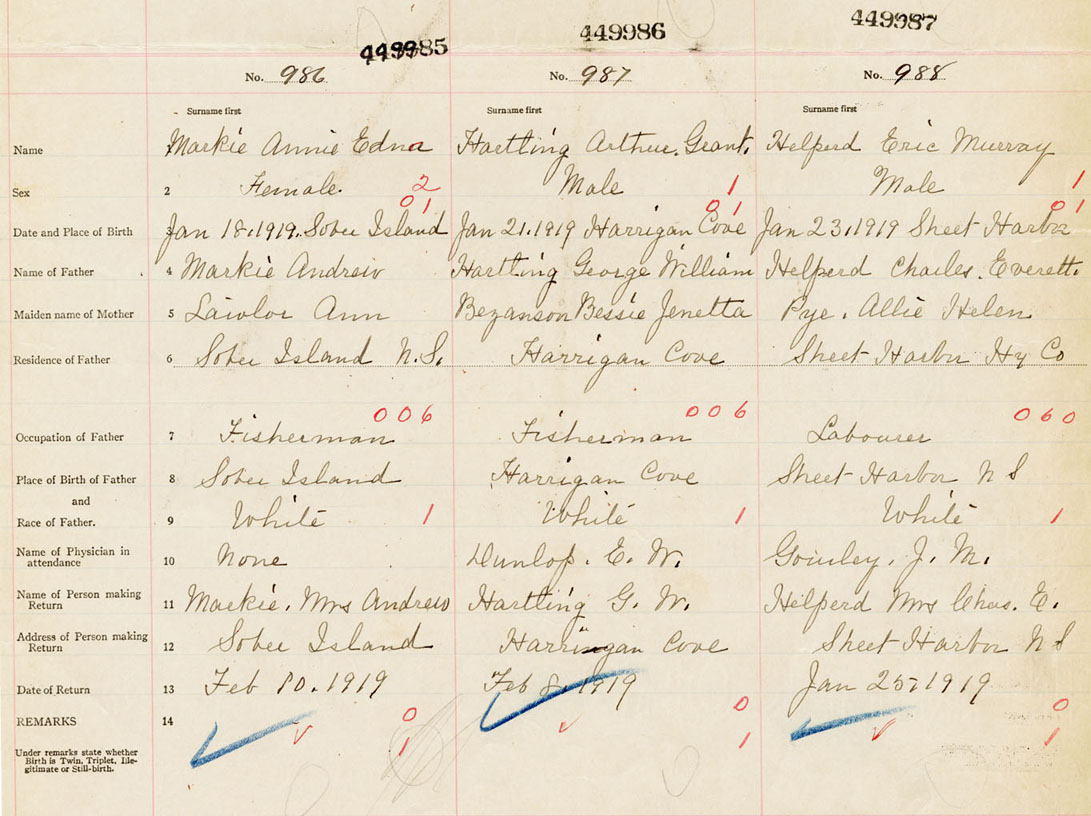 449985 449986 449987
No. 986 No. 987 No. 988
Surname first Surname first Surname first
Name Markie Annie Edna Hartling Arthur Grant. Helperd Eric Murray
Sex 2 Female. 2 Male 1 Male 1
01 01 01
Date and Place of Birth 3 Jan 18.1919. Sober Island Jan 21.1919 Harrigan Cove Jan 23,1919 Sheet Harbor
Name of Father 4 Markie Andrew Hartling George William Helperd Charles. Everett.
Maiden name of Mother 5 Lawlor Ann Bezanson Bessie Jenetta Pye. Allie Helen
Residence of Father 6 Sober Island N.S. Harrigan Cove Sheet Harbor Hx Co
006 006 060
Occupation of Father 7 Fisherman Fisherman Labourer
Place of Birth of Father 8 Sober Island Harrigan Cove Sheet Harbor N S
and
Race of Father. 9 White 1 White 1 White 1
Name of Physician in
attendance 10 None Dunlop. E. W. J. M.
Name of Person making
Return 11 Markie. Mrs Andrew Hartling G. W. Helperd Mrs Chas. E.
Address of Person making
Return 12 Sober Island Harrigan Cove Sheet Harbor N S
Date of Return 13 Feb 10.1919 Feb 8.1919 Jan 25,1919
REMARKS 14 0 0 0
Under remarks state whether 1 1 1
Birth is Twin, Triplet, Ille-
gitimate or Still-birth.